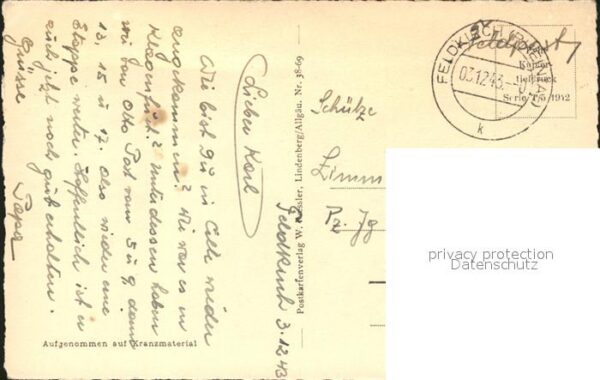 Feldkirch 3.12.43
Lieber Karl
Wie bist Du in Celle wieder
angekommen? Wie war es in
Klagenfurt? Unterdessen haben
wir von Otto Post vom 5 u 9, dann
13, 15 u 17. also wieder eine
Etappe weiter. Hoffentlich ist er
auch jetzt noch gut erhalten.
Grüsse
Papa
Aufgenommen auf Kranzmaterial
Postkartenverlag W. Kessler, Lindenberg/Allgäu. Nr. 38-69
FELDKIRCH
03.12.43.
k
Feldpost
Kupfer-
tiefdruck
Schütze
Zimm
Pz. Jg
privacy protection
Datenschutz